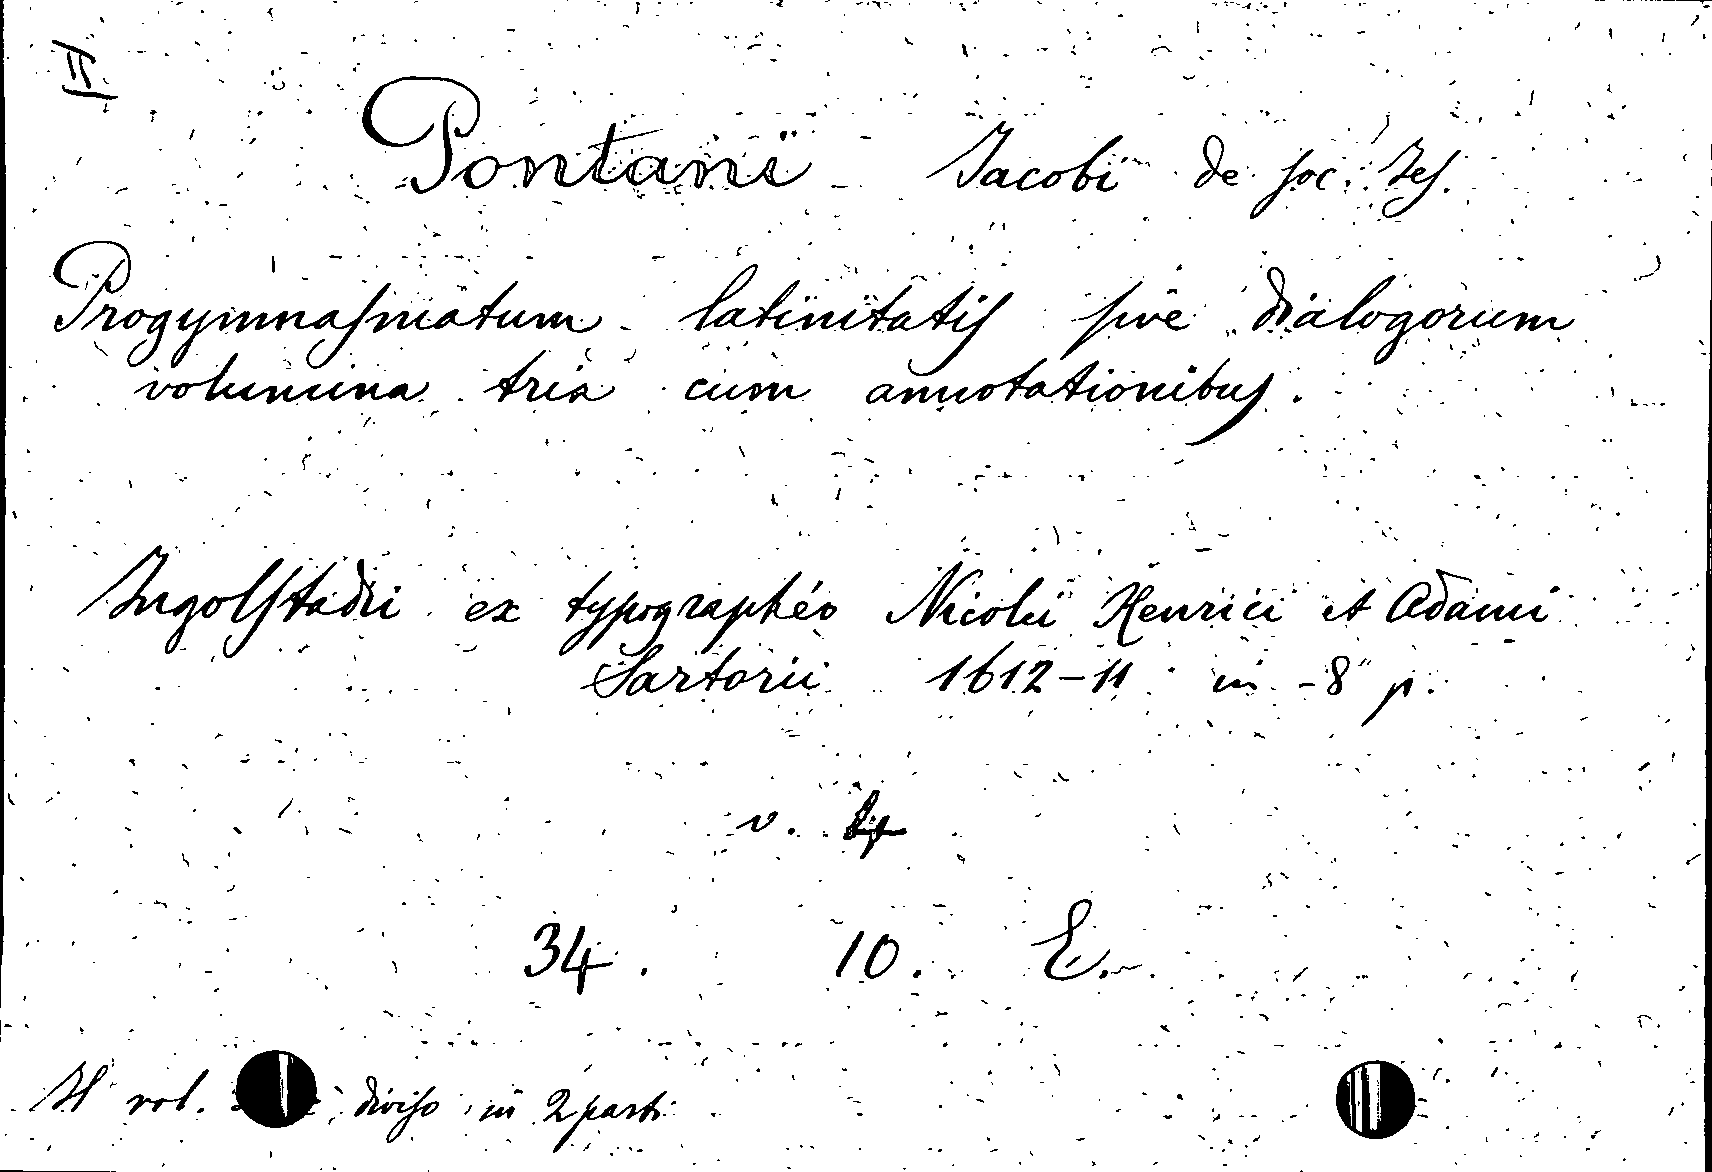 II
Pontani Jacobi de soc. Jes.
Progymnasmatum latinitatis sive dialogorum
volumina tria cum annotationibus.
Ingolstadii ex typographéo Nicolii Henrici et Adami
Sartorii 1612-11 in -8° p.
v.
34. 10. E.
Il vol. diviso in 2 parti